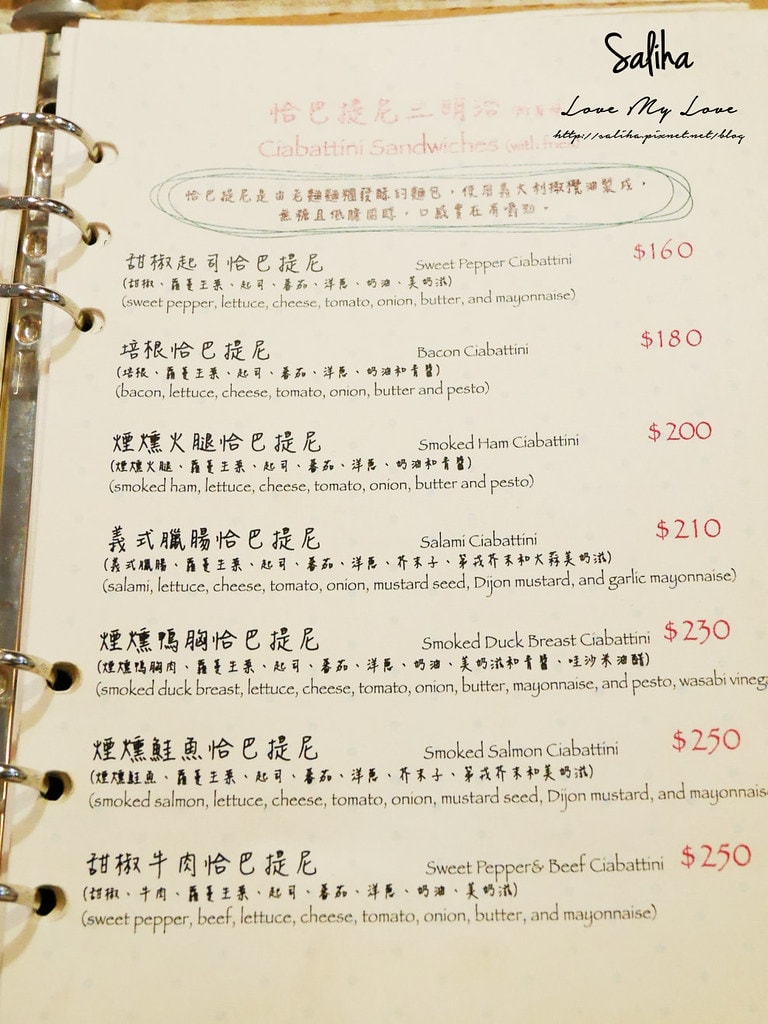 Saliha
Love My Love
http://saliha.pixnet.net/blog
恰巴提尼三明治
Ciabattini Sandwiches (with fries)
恰巴提尼是由老麵麵糰發酵的麵包，使用義大利橄欖油製成，
無糖且低膽固醇，口感實在有嚼勁。
甜椒起司恰巴提尼 Sweet Pepper Ciabattini $160
(甜椒、蘿蔓生菜、起司、番茄、洋蔥、奶油、美奶滋)
(sweet pepper, lettuce, cheese, tomato, onion, butter, and mayonnaise)
培根恰巴提尼 Bacon Ciabattini $180
(培根、蘿蔓生菜、起司、番茄、洋蔥、奶油和青醬)
(bacon, lettuce, cheese, tomato, onion, butter and pesto)
煙燻火腿恰巴提尼 Smoked Ham Ciabattini $200
(煙燻火腿、蘿蔓生菜、起司、番茄、洋蔥、奶油和青醬)
(smoked ham, lettuce, cheese, tomato, onion, butter and pesto)
義式臘腸恰巴提尼 Salami Ciabattini $210
(義式臘腸、蘿蔓生菜、起司、番茄、洋蔥、芥末子、第戎芥末和大蒜美奶滋)
(salami, lettuce, cheese, tomato, onion, mustard seed, Dijon mustard, and garlic mayonnaise)
煙燻鴨胸恰巴提尼 Smoked Duck Breast Ciabattini $230
(煙燻鴨胸肉、蘿蔓生菜、起司、番茄、洋蔥、奶油、美奶滋和青醬、哇沙米油醋)
(smoked duck breast, lettuce, cheese, tomato, onion, butter, mayonnaise, and pesto, wasabi vinega
煙燻鮭魚恰巴提尼 Smoked Salmon Ciabattini $250
(煙燻鮭魚、蘿蔓生菜、起司、番茄、洋蔥、芥末子、第戎芥末和美奶滋)
(smoked salmon, lettuce, cheese, tomato, onion, mustard seed, Dijon mustard, and mayonnais
甜椒牛肉恰巴提尼 Sweet Pepper& Beef Ciabattini $250
(甜椒、牛肉、蘿蔓生菜、起司、番茄、洋蔥、奶油、美奶滋)
(sweet pepper, beef, lettuce, cheese, tomato, onion, butter, and mayonnaise)